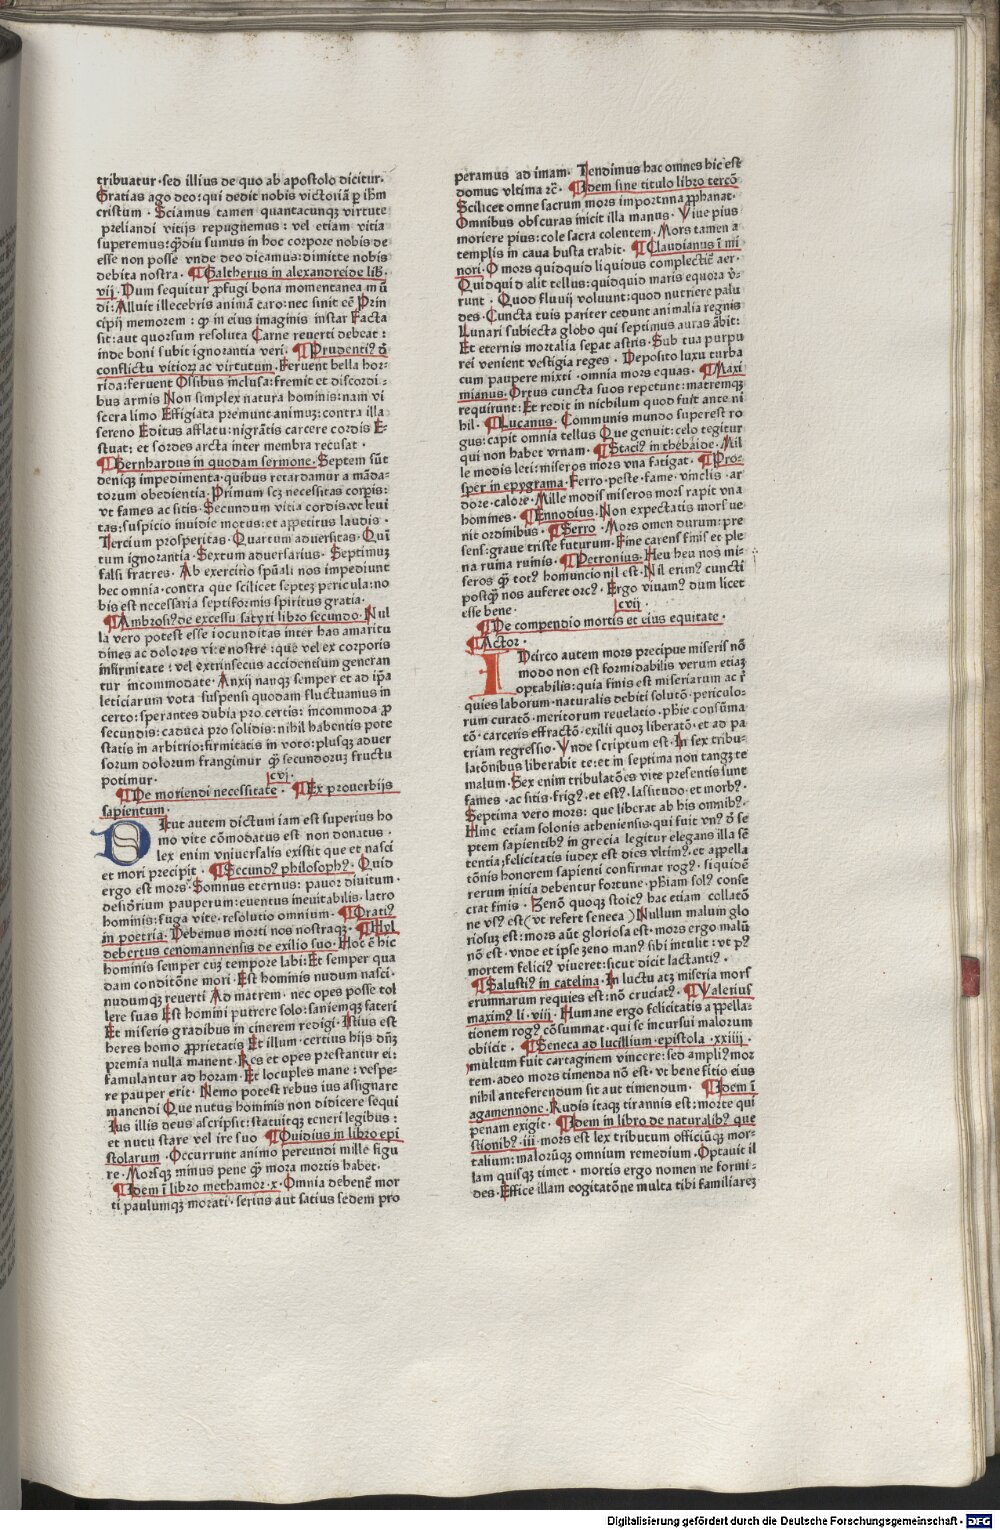 tribuatur·sed illius de quo ab apostolo dicitur.
Gratias ago deo:qui dedit nobis victoriā ꝑ ihm̄
cristum · Sciamus tamen quantacunqꝫ virtute
preliandi vitijs repugnemus : vel etiam vitia
superemus:qꝫdiu sumus in hoc corpore nobis de
esse non posse vnde deo dicamus:dimitte nobis
debita nostra · ¶Galtherus in alexandreide lib·
vij · Dum sequitur ꝓfugi bona momentanea mū
di:Alluit illecebris animā caro:nec sinit eē Prin
cipij memorem : qꝫ in eius imaginis instar Facta
sit:aut quorsum resoluta Carne reuerti debeat :
inde boni subit ignorantia veri · ¶Prudentiꝰ ī
conflictu vitioꝝ ac virtutum · Feruent bella hor-
rida:feruent Ossibus inclusa:fremit et discordi-
bus armis Non simplex natura hominis:nam vi
scera limo Effigiata premunt animuꝫ:contra illa
sereno Editus afflatu:nigrātis carcere cordis E-
stuat: et sordes arcta inter membra recusat ·
¶Bernhardus in quodam sermone · Septem sūt
deniqꝫ impedimenta·quibus retardamur a māda-
torum obedientia · Primum scꝫ necessitas corꝑis:
vt fames ac sitis · Secundum vitia cordis:vt leui
tas:suspicio inuidie motus:et aꝑetitus laudis ·
Tercium prosperitas · Quartum aduersitas · Quī
tum ignorantia · Sextum aduersarius · Septimuꝫ
falsi fratres · Ab exercitio spūali nos impediunt
hec omnia·contra que scilicet septeꝫ pericula:no
bis est necessaria septiformis spiritus gratia ·
¶Ambrosiꝰ de excessu satyri libro secundo · Nul
la vero potest esse iocunditas inter has amaritu
dines ac dolores vite nostre : que vel ex corporis
infirmitate : vel extrinsecus accidentium generan
tur incommodate · Anxij nanqꝫ semper et ad ip̄a
leticiarum vota suspensi quodam fluctuamus in
certo:sperantes dubia pro certis: incommoda ꝓ
secundis:caduca pro solidis:nihil habentis pote
statis in arbitrio:firmitatis in voto:plusqꝫ aduer
sorum dolorum frangimur qꝫ secundoruꝫ fructu
potimur ·
cvj ·
¶De moriendi necessitate · ¶Ex prouerbijs
sapientum ·
DIcut autem dictum iam est superius ho
mo vite cōmodatus est non donatus ·
lex enim vniuersalis existit que et nasci
et mori precipit · ¶Secundꝰ philosophꝰ · Quid
ergo est mors Somnus eternus: pauor diuitum ·
desiderium pauperum:euentus ineuitabilis·latro
hominis:fuga vite·resolutio omnium · ¶Oratiꝰ
in poetria · Debemus morti nos nostraqꝫ · ¶Hyl
debertus cenomannensis de exilio suo · Hoc ē hic
hominis semper cuꝫ tempore labi:Et semper qua
dam conditōne mori · Est hominis nudum nasci·
nudumqꝫ reuerti Ad matrem · nec opes posse tol
lere suas Est homini putrere solo:saniemqꝫ fateri
Et miseris gradibus in cinerem redigi · Istius est
heres homo ꝓprietatis Et illum · certius hijs dn̄ꝫ
premia nulla manent · Res et opes prestantur ei:
famulantur ad horam · Et locuples mane : vespe-
re pauper erit · Nemo potest rebus ius assignare
manendi Que nutus hominis non didicere sequi
Ius illis deus ascripsit:statuitqꝫ teneri legibus :
et nutu stare vel ire suo ¶Ouidius in libro epi
stolarum · Occurrunt animo pereundi mille figu
re · Morsqꝫ minus pene qꝫ mora mortis habet ·
¶Idem ī libro methamor·x · Omnia debenē mor
ti paulumqꝫ morati · serius aut satius sedem pro
peramus ad imam · Tendimus hac omnes hic est
domus vltima rē · ¶Idem sine titulo libro tercō
Scilicet omne sacrum mors importnna ꝓphanat ·
Omnibus obscuras inicit illa manus · Viue pius
moriere pius:cole sacra colentem · Mors tamen a
templis in caua busta trahit · ¶Claudianus ī mi
nori · O mors quidquid liquidus complectiē aer ·
Quidquid alit tellus:quidquid maris equora v̄-
runt · Quod fluuij voluunt:quod nutriere palu
des · Cuncta tuis pariter cedunt animalia regnis
Lunari subiecta globo qui septimus auras ābit:
Et eternis mortalia seꝑat astris · Sub tua purpu
rei venient vestigia reges · Deposito luxu turba
cum paupere mixti · omnia mors equas · ¶Maxi
mianus · Ortus cuncta suos repetunt:matremqꝫ
requirunt: Et redit in nichilum quod fuit ante ni
hil · ¶Lucanus · Communis mundo superest ro
gus:capit omnia tellus Que genuit:celo tegitur
qui non habet vrnam · ¶Staciꝰ in thebaide · Mil
le modis leti:miseros mors vna fatigat · ¶Pro-
sper in epygrama · Ferro·peste·fame·vinclis·ar
dore·calore·Mille modis miseros mors rapit vna
homines · ¶Ennodius · Non expectatis mors ue
nit ordinibus · ¶Serro · Mors omen durum: pre
sens:graue triste futurum · Fine carens finis et ple
na ruina ruinis · ¶Petronius · Heu heu nos mi-
seros qꝫ totꝰ homuncio nil est · Nil erimꝰ cuncti
postqꝫ nos auferet orcꝰ · Ergo viuamꝰ dum licet
esse bene ·
cvij ·
¶De compendio mortis et eius equitate ·
¶Actor ·
IDcirco autem mors precipue miseris nō
modo non est formidabilis verum etiaꝫ
optabilis: quia finis est miseriarum ac r̄
quies laborum·naturalis debiti solutō·periculo-
rum curatō·meritorum reuelatio·pħie consūma
tō·carceris effractō·exilii quoꝫ liberatō·et ad pa
triam regressio · Vnde scriptum est · In sex tribu-
latōnibus liberabit te:et in septima non tangꝫ te
malum · Sex enim tribulatōes vite presentis sunt
fames · ac sitis·frigꝰ · et estꝰ · lassitudo·et morbꝰ ·
Septima vero mors: que liberat ab his omnibꝰ ·
Hinc etiam solonis atheniensis·qui fuit vnꝰ d̄ se
ptem sapientibꝰ in grecia legitur elegans illa sē
tentia:felicitatis iudex est dies vltimꝰ · et appella
tōnis honorem sapienti confirmat rogꝰ · siquidē
rerum initia debentur fortune · pħiam solꝰ conse
crat finis · Zenō quoqꝫ stoicꝰ hac etiam collatō
ne vsꝰ est(vt refert seneca) Nullum malum glo
riosuꝫ est:mors aūt gloriosa est·mors ergo malū
nō est·vnde et ipse zeno manꝰ sibi intulit : vt pꝰ
mortem feliciꝰ viueret:sicut dicit lactantiꝰ ·
¶Salustiꝰ in catelina · In luctu atqꝫ miseria mors
erumnarum requies est:nō cruciatꝰ · ¶Valerius
maximꝰ li·viij · Humane ergo felicitatis aꝑpella-
tionem rogꝰ cōsummat·qui se incursui malorum
obiicit · ¶Seneca ad lucillium epistola·xxiiij ·
multum fuit cartaginem vincere:sed ampliꝰ mor
tem·adeo mors timenda nō est·vt bene fitio eius
nihil anteferendum sit aut timendum · ¶Idem ī
agamennone · Rudis itaqꝫ tirannis est:morte qui
penam exigit · ¶Idem in libro de naturalibꝰ que
stionibꝰ·iii · mors est lex tributum officiūqꝫ mor-
talium:malorūqꝫ omnium remedium · Optauit il
lam quisqꝫ timet · mortis ergo nomen ne formi-
des·Effice illam cogitatōne multa tibi familiareꝫ
Digitalisierung gefördert durch die Deutsche Forschungsgemeinschaft - DFG